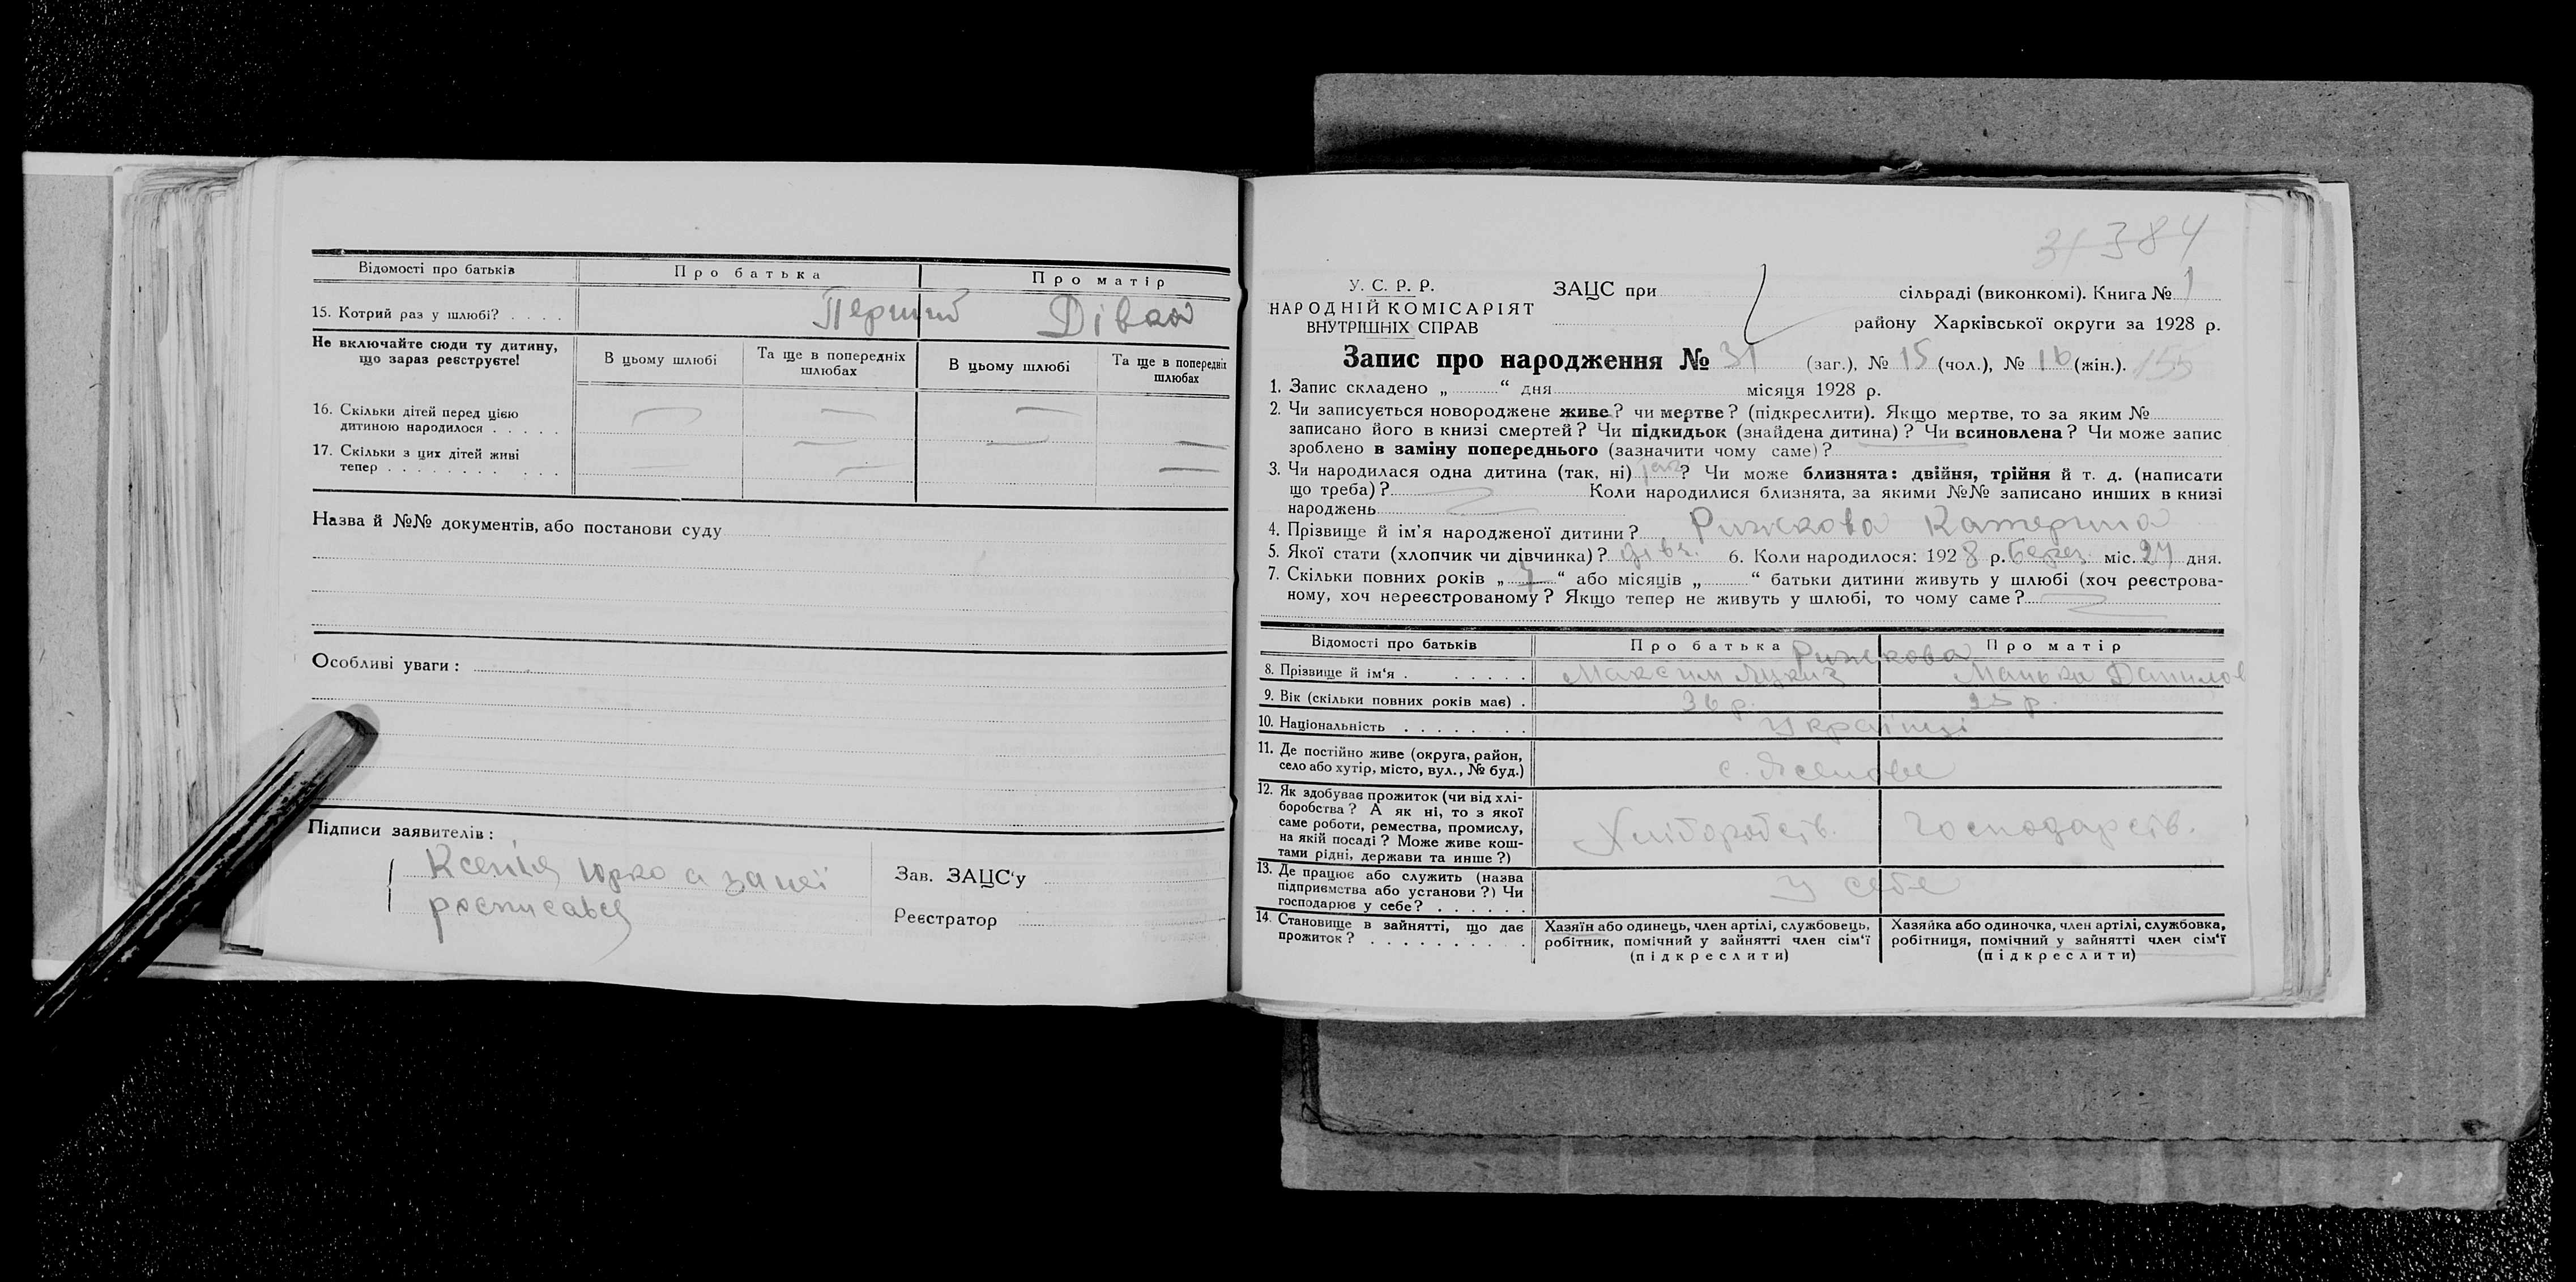 Відомості про батьків Про батька Про матір
15. Котрий раз у шлюбі? Перший Дівкой
Не включайте сюди ту дитину, що зараз реєструєте! В цьому шлюбі Та ще в попередніх шлюбах В цьому шлюбі Та ще в попередніх шлюбах
16. Скільки дітей перед цією
дитиною народилося
17. Скільки з цих дітей живі
тепер
Назва й №№ документів, або постанови суду
Особливі уваги:
Підписи заявителів:
Ксенія Юрко а за неї
росписався
Зав. ЗАЦС'у
Реєстратор
31 384
У. С. Р. Р.
НАРОДНІЙ КОМІСАРІЯТ
ВНУТРІШНІХ СПРАВ
ЗАЦС при сільраді (виконкомі). Книга № 1
району Харківської округи за 1928 р.
Запис про народження № 31 (заг.), № 15 (чол.), № 16 (жін.). 155
1. Запис складено „ “ дня місяця 1928 р.
2. Чи записується новороджене живе? чи мертве? (підкреслити). Якщо мертве, то за яким №
записано його в книзі смертей? Чи підкидьок (знайдена дитина)? Чи всиновлена? Чи може запис
зроблено в заміну попереднього (зазначити чому саме)?
3. Чи народилася одна дитина (так, ні) так? Чи може близнята: двійня, трійня й т. д. (написати
що треба)? Коли народилися близнята, за якими №№ записано инших в книзі
народжень
4. Прізвище й ім'я народженої дитини? Рижкова Катерина
5. Якої стати (хлопчик чи дівчинка)? дівч. 6. Коли народилося: 1928 р. берез. міс. 27 дня.
7. Скільки повних років „ “ або місяців „ “ батьки дитини живуть у шлюбі (хоч реєстрова-
ному, хоч нереєстрованому? Якщо тепер не живуть у шлюбі, то чому саме?
Відомості про батьків Про батька Про матір
Рижкова
8. Прізвище й ім'я Максим Манька Данилов
9. Вік (скільки повних років має) 36 р. 25 р.
10. Національність Українці
11. Де постійно живе (округа, район,
село або хутір, місто, вул., № буд.) с. Ясенове
12. Як здобуває прожиток (чи від хлі-
боробства? А як ні, то з якої
саме роботи, ремества, промислу,
на якій посаді? Може живе кош-
тами рідні, держави та инше?) Хліборобств. Господарств.
13. Де працює або служить (назва
підприємства або установи?) Чи
господарює у себе? У себе
14. Становище в зайнятті, що дає
прожиток?
Хазяїн або одинець, член артілі, службовець,
робітник, помічний у зайнятті член сім'ї
(підкреслити)
Хазяйка або одиночка, член артілі, службовка,
робітниця, помічний у зайнятті член сім'ї
(підкреслити)